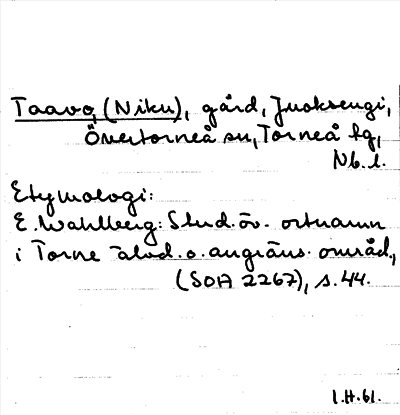 Taavo, (Niku), gård, Juoksengi,
Övertorneå sn, Torneå tg,
Nb. l.
Etymologi:
E. Wahlberg: Stud. öv. ortnamn
i Torne älvd. o. angräns. områd.,
(SOA 2267), s. 44.
I.H.61.